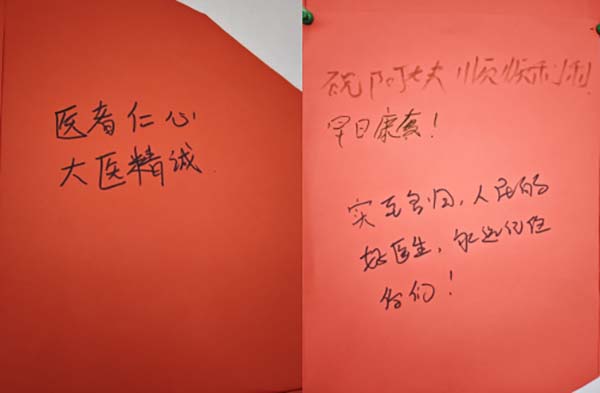 医者仁心
大医精诚
祝阿大夫顺顺利利
早日康复！
实至名归，人民的
好医生，永远记住
你们！